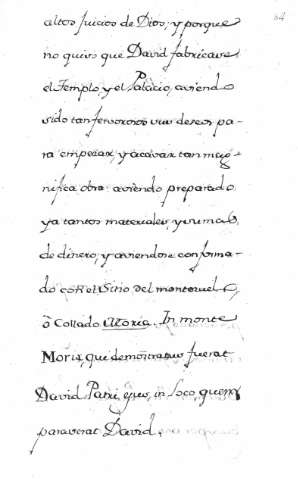 64
altos juicios de Dios; y porque
no quiso que David fabricase
el Templo, y el Palacio, aviendo
sido tan fervorosos sus deseos pa-
ra empezar, y acavar tan mag-
nifica obra: aviendo preparado
ya tantos materiales y sumas
de dinero, y aviendose conforma-
do con el Sitio del
ò Collado Moria. In monte
Moria, qui demonstratus fuerat
David Patri ejus, in loco, quem
paraverat David.